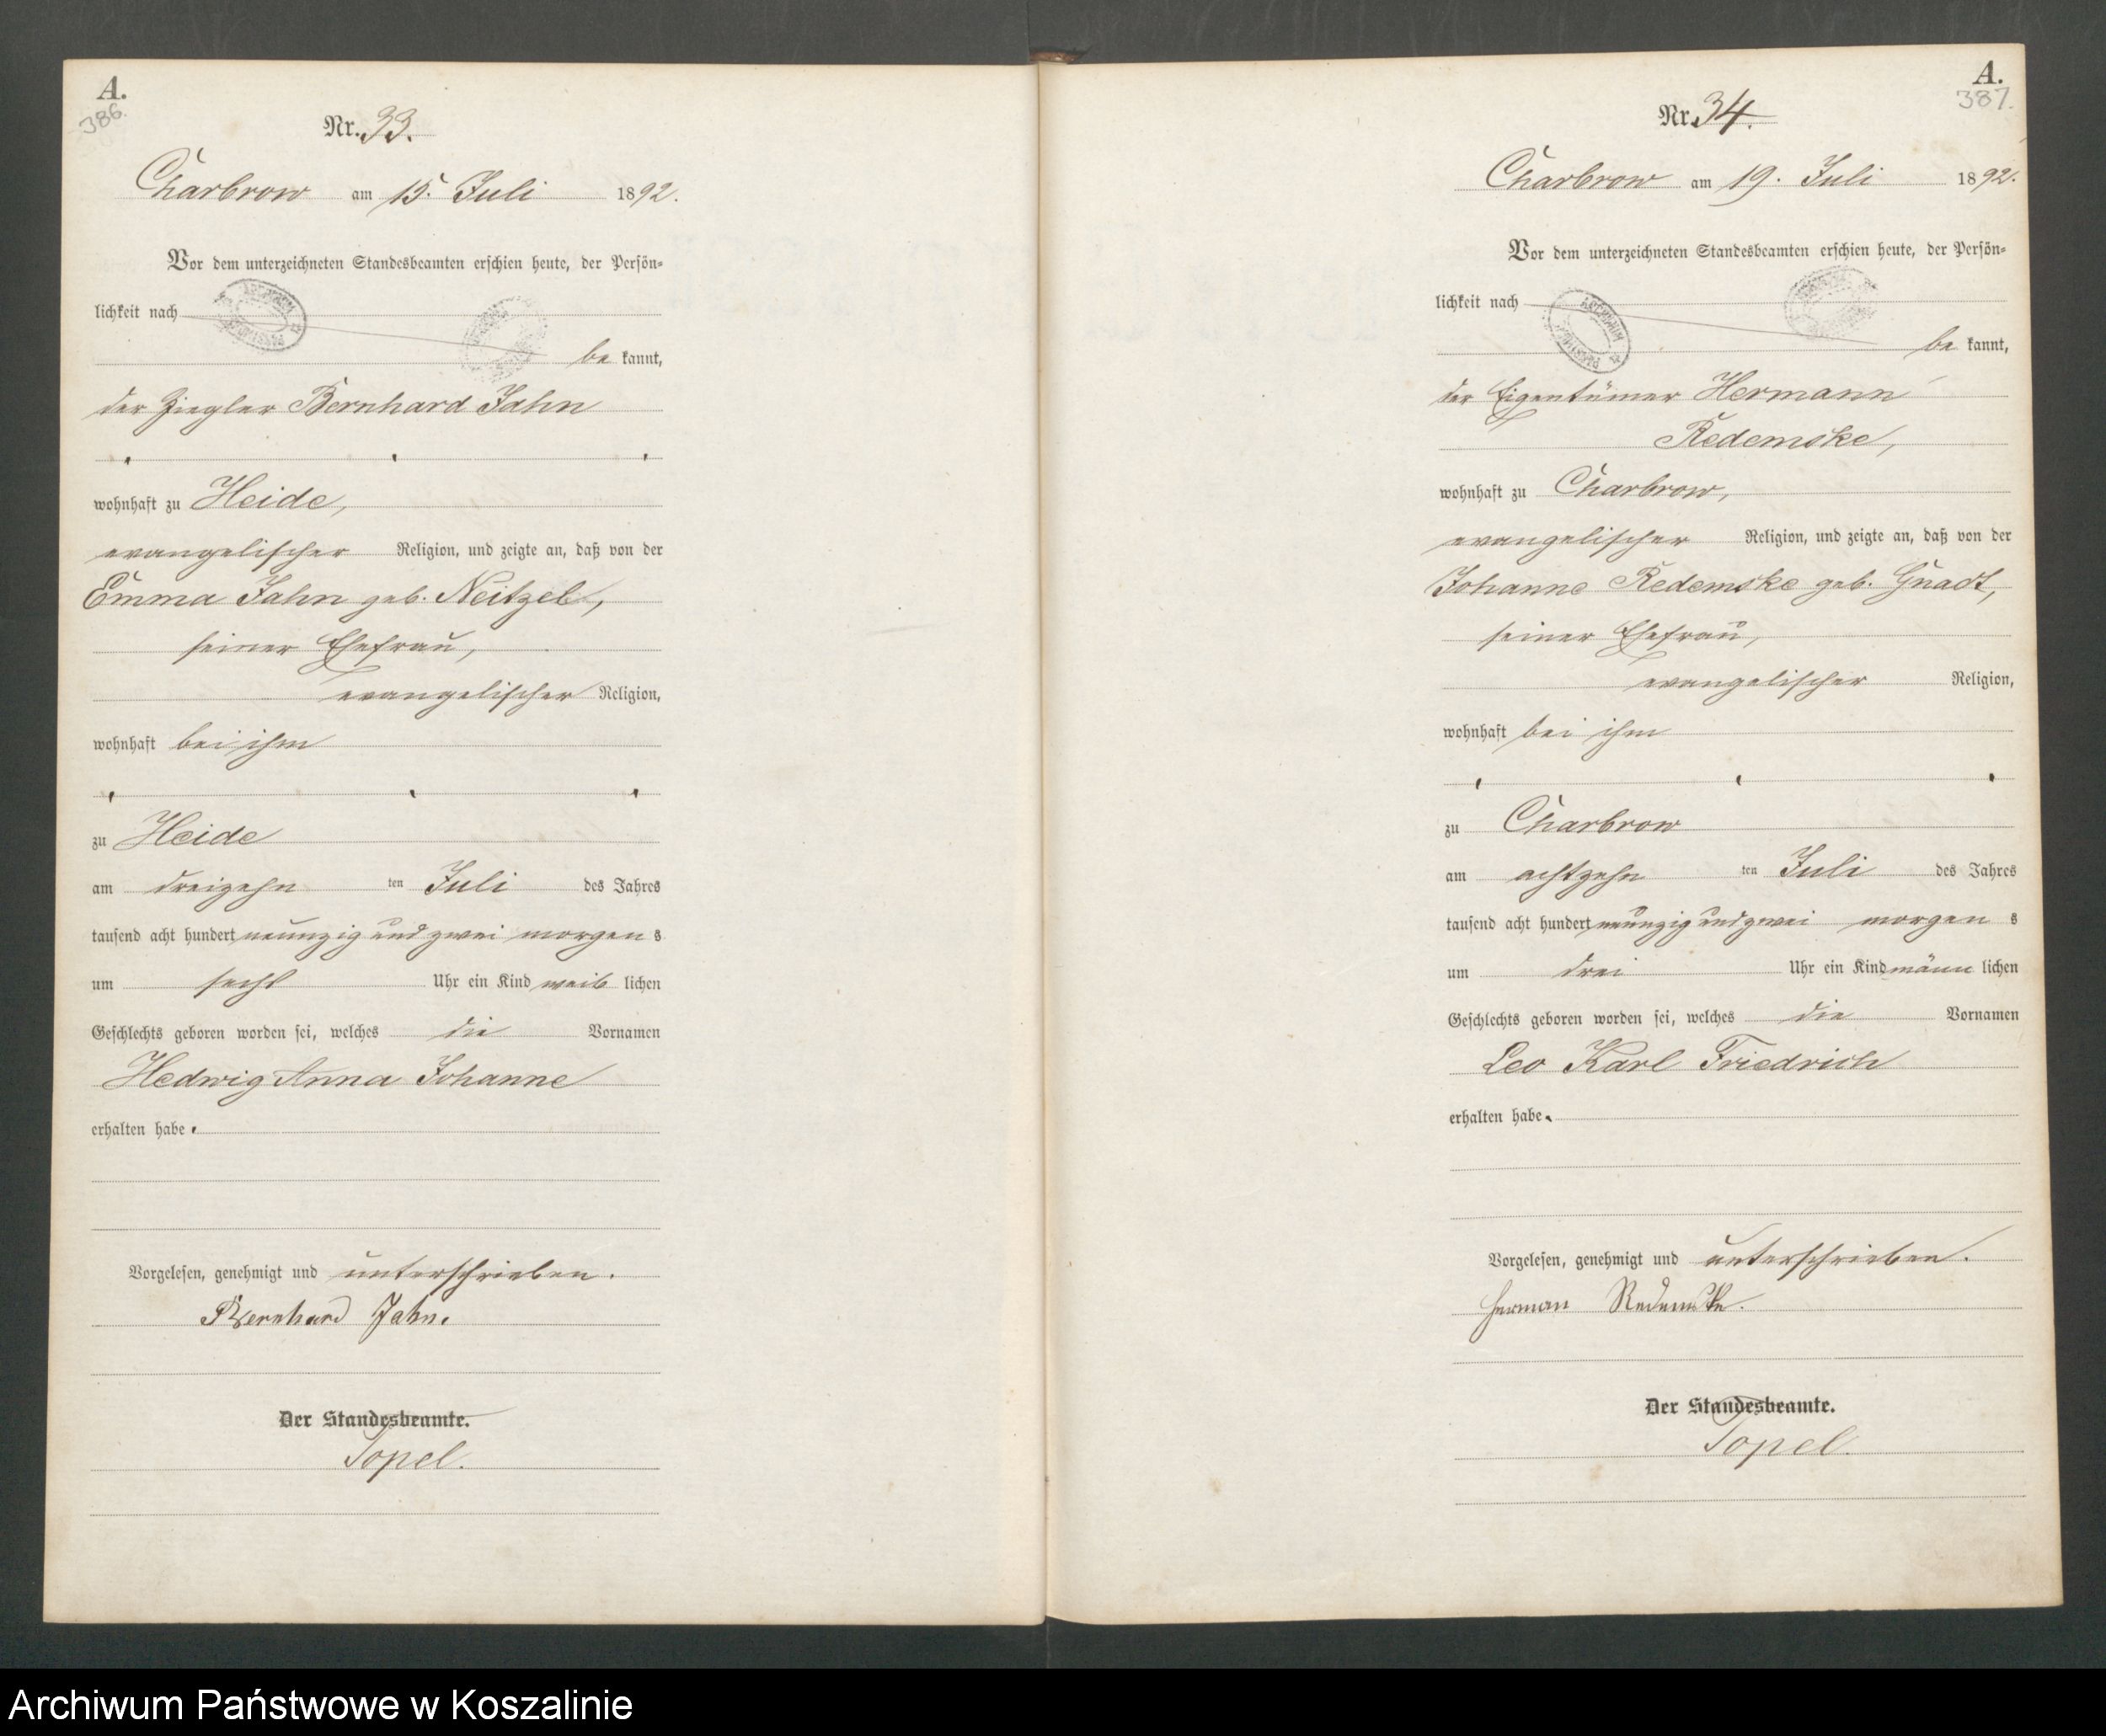 A.
386.
Nr. 33.
Charbrow am 15. Juli 1892.
Vor dem unterzeichneten Standesbeamten erschien heute, der Persön-
lichkeit nach
be kannt,
der Ziegler Bernhard Jahn
wohnhaft zu Heide,
evangelischer Religion, und zeigte an, daß von der
Emma Jahn geb. Neitzel,
seiner Ehefrau,
evangelischer Religion,
wohnhaft bei ihm
zu Heide
am dreizehn ten Juli des Jahres
tausend acht hundert neunzig und zwei morgen s
um sechs Uhr ein Kind weib lichen
Geschlechts geboren worden sei, welches die Vornamen
Hedwig Anna Johanne
erhalten habe.
Vorgelesen, genehmigt und unterschrieben.
Bernhard Jahn.
Der Standesbeamte.
Topel.
A.
387.
Nr. 34.
Charbrow am 19. Juli 1892.
Vor dem unterzeichneten Standesbeamten erschien heute, der Persön-
lichkeit nach
be kannt,
der Eigentümer Hermann
Redemske,
wohnhaft zu Charbrow,
evangelischer Religion, und zeigte an, daß von der
Johanne Redemske geb. Gnadt,
seiner Ehefrau,
evangelischer Religion,
wohnhaft bei ihm
zu Charbrow
am achtzehn ten Juli des Jahres
tausend acht hundert neunzig und zwei morgen s
um drei Uhr ein Kind männ lichen
Geschlechts geboren worden sei, welches die Vornamen
Leo Karl Friedrich
erhalten habe.
Vorgelesen, genehmigt und unterschrieben.
Herman Redemske.
Der Standesbeamte.
Topel.
Archiwum Państwowe w Koszalinie